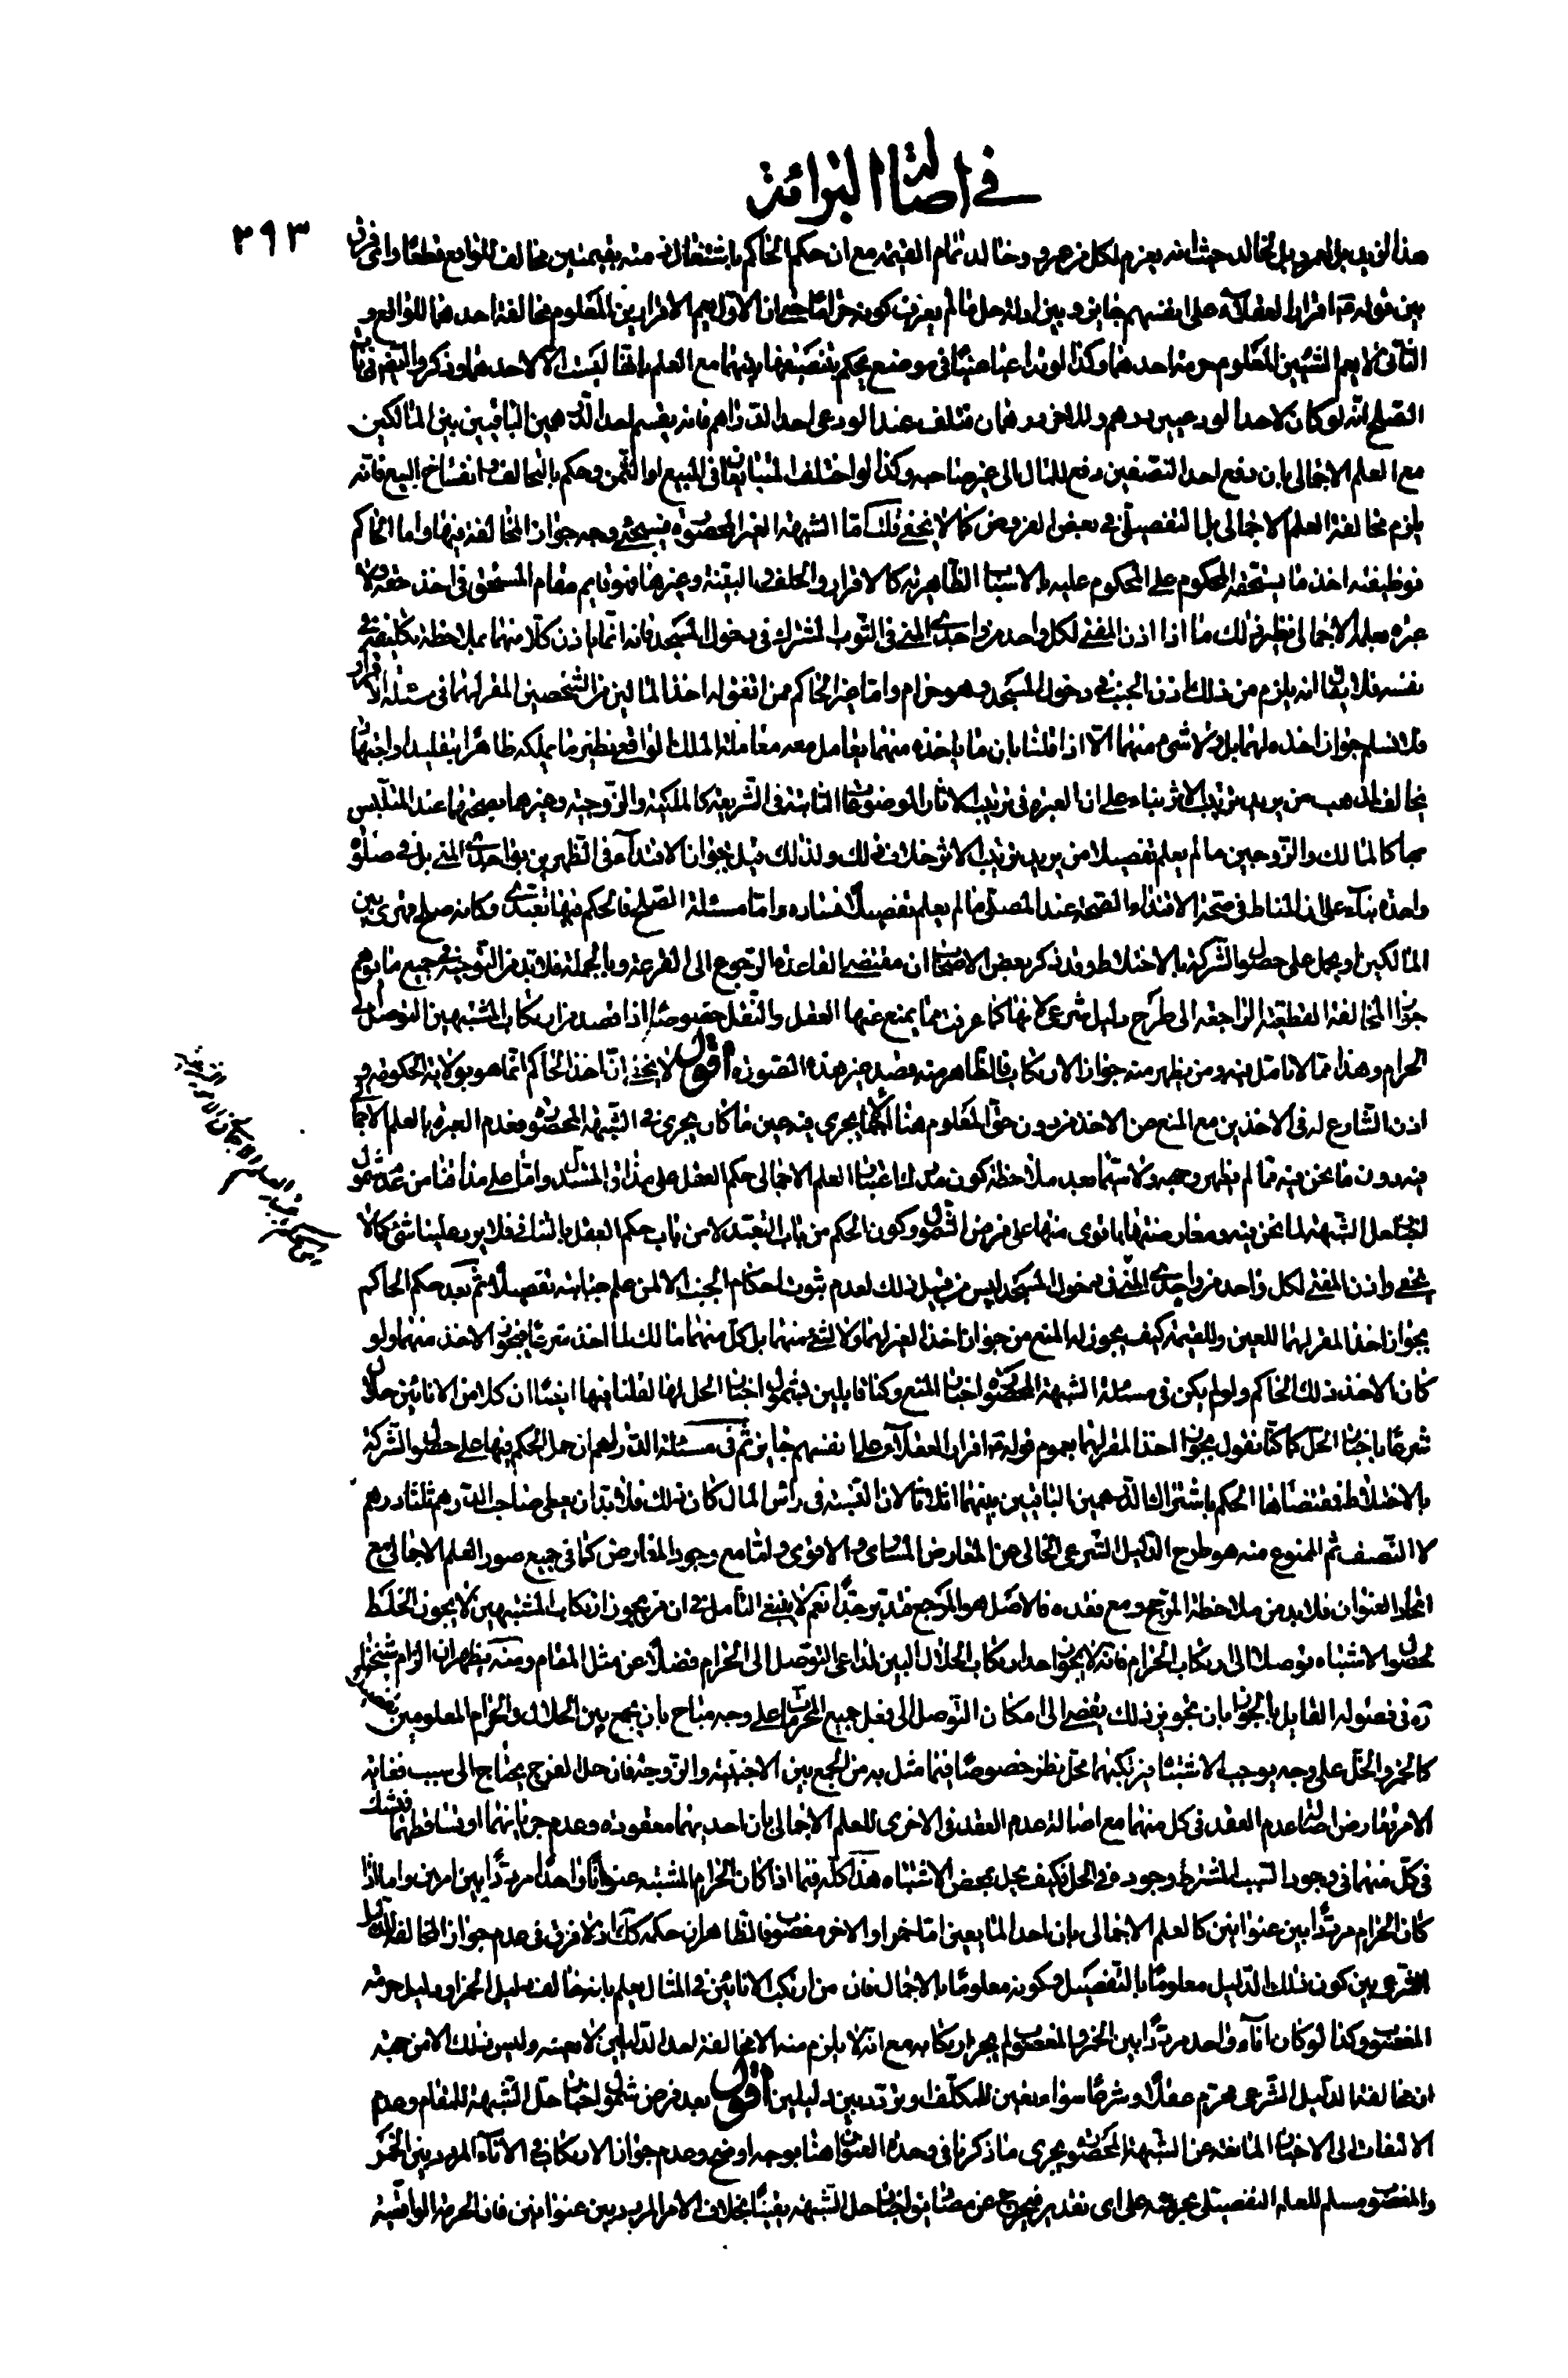 في اصالة البرائة
٢٩٣
هذا لزيد بل لعمرو بل لخالد حيث انه يغرم لكل من عمرو وخالد تمام القيمة مع ان حكم الحاكم باشتغال ذمته بقيمتين مخالف للواقع قطعا واى فرق
بين قوله ع اقرار العقلاء على انفسهم جايز وبين ادلة حل ما لم يعرف كونه حراما حتى ان الاول يعم الاقرارين المعلوم مخالفة احدهما للواقع و
الثاني لا يعم الشيئين المعلوم حرمة احدهما وكذا لو تداعيا عينا في موضع يحكم بتنصيفها بينهما مع العلم بانها ليست الا لاحدهما وذكروا ايضا في باب
الصلح انه لو كان لاحد الودعيين درهم وللاخر درهمان فتلف عند الودعى احد الدراهم فانه يقسم احد الدرهمين الباقيين بين المالكين
مع العلم الاجمالى بان دفع احد النصفين دفع للمال الى غير صاحبه وكذا لو اختلف المتبايعان في المبيع او الثمن وحكم بالتحالف وانفساخ البيع فانه
يلزم مخالفة العلم الاجمالى بل التفصيلى في بعض الفروض كما لا يخفى قلت اما الشبهة الغير المحصورة فسيجئ وجه جواز المخالفة فيها واما الحاكم
فوظيفته اخذ ما يستحقه المحكوم له على المحكوم عليه بالاسباب الظاهرية كالاقرار والحلف والبينة وغيرها فهو قايم مقام المستحق في اخذ حقه ولا
عبرة بعلمه الاجمالى نظير ذلك ما اذا اذن المفتى لكل واحد من واجدى المنى في الثوب المشترك في دخول المسجد فانه انما ياذن كلا منهما بملاحظة تكليفه في
نفسه فلا يقال انه يلزم من ذلك اذن الجنب في دخول المسجد وهو حرام واما غير الحاكم ممن اتفق له اخذ المالين من الشخصين المقر لهما في مسئلة الاقرار
فلا نسلم جواز اخذه لهما بل ولا لشيء منهما الا اذا قلنا بان ما ياخذه منهما يعامل معه معاملة الملك الواقعى نظير ما يملكه ظاهرا بتقليد او اجتهاد
يخالف لمذهب من يريد ترتيب الاثر بناء على ان العبرة في ترتيب الاثار الموضوعات الثابتة في الشريعة كالملكية والزوجية وغيرهما بصحتها عند المتلبس
بها كالمالك والزوجين ما لم يعلم تفصيلا من يريد ترتيب الاثر خلاف ذلك ولذلك قيل بجواز الاقتداء في الظهرين بواجدى المنى بل في صلوة
واحدة بناء على ان المناط في صحة الاقتداء الصحة عند المصلى ما لم يعلم تفصيلا فساده واما مسئلة الصلح فالحكم فيها تعبدى وكانه صلح قهرى بين
المالكين او يحمل على حصول الشركة بالاختلاط وقد ذكر بعض الاصحاب ان مقتضى القاعدة الرجوع الى القرعة وبالجملة فلا بد من التوجيه في جميع ما توهم
جواز المخالفة القطعية الراجعة الى طرح دليل شرعى لانها كما عرفت مما يمنع عنها العقل والنقل خصوصا اذا قصد من ارتكاب المشتبهين التوصل الى
الحرام وهذا مما لا تامل فيه ومن يظهر منه جواز الارتكاب فالظاهر منه قصد غير هذه الصورة اقول لا يخفى ان اخذ الحاكم انما هو بولاية الحكومة و
اذن الشارع له في الاخذين مع المنع عن الاخذ من دون حق المعلوم هنا اجمالا يجرى فيه عين ما كان يجرى في الشبهة المحصورة فعدم العبرة بالعلم الاجمالى
فيه دون ما نحن فيه مما لم يظهر وجهه ولا سيما بعد ملاحظة كون مدرك اعتبار العلم الاجمالى حكم العقل على مذاق المستدل واما على مذاقنا من عدم شمول
اخبار حل الشبهة لما نحن فيه ومعارضتها باقوى منها على فرض الشمول وكون الحكم من باب التعبد لا من باب حكم العقل بالتنافى فلا يرد علينا شئ كما لا
يخفى واذن المفتى لكل واحد من واجدى المنى في دخول المسجد ليس من قبيل ذلك لعدم ثبوت احكام الجنب الا لمن علم جنابته تفصيلا ثم بعد حكم الحاكم
بجواز اخذ المقر لهما للعين وللقيمة كيف يجوز له المنع من جواز اخذ الغير لهما ولا لشئ منهما بل كل منهما مالك لما اخذ شرعا فيجوز الاخذ منهما ولو
كان الاخذ ذلك الحاكم ولو لم يكن في مسئلة الشبهة المحصورة اخبار المنع وكنا قايلين بشمول اخبار الحل لها لقلنا فيها ايضا ان كلا من الانائين حلال
شرعا باخبار الحل كما كنا نقول بجواز اخذ المقر لهما بعموم قوله ع اقرار العقلاء على انفسهم جايز ثم في مسئلة الدراهم ان حمل الحكم فيها على حصول الشركة
بالاختلاط فمقتضاها الحكم باشتراك الدرهمين الباقيين بينهما اثلاثا لان النسبة في راس المال كان كذلك فلا بد ان يعطى صاحب الدرهم ثلثا درهم
لا النصف ثم الممنوع منه هو طرح الدليل الشرعى الخالى عن المعارض المساوى والاقوى واما مع وجود المعارض كما في جميع صور العلم الاجمالى مع
اتحاد العنوان فلا بد من ملاحظة المرجح ومع فقده فالاصل هو المرجع فتدبر جيدا نعم لا ينبغى التامل في ان من يجوز ارتكاب المشتبهين لا يجوز الخلط
لحصول الاشتباه توصلا الى ارتكاب الحرام فانه لا يجوز احد ارتكاب الحلال البين لداعى التوصل الى الحرام فضلا عن مثل المقام ومنه يظهر ان الزام شيخنا
ره في فصوله القايل بالجواز بان تجويز ذلك يفضى الى امكان التوصل الى فعل جميع المحرمات على وجه مباح بان يجمع بين الحلال والحرام المعلومين تفصيلا
كالخمر والخل على وجه يوجب الاشتباه فيرتكبهما محل نظر خصوصا فيما مثل به من الجمع بين الاجنبية والزوجة فان حل الفرج يحتاج الى سبب فغاية
الامر تعارض اصالة عدم العقد في كل منهما مع اصالة عدم العقد في الاخرى للعلم الاجمالى بان احديهما معقودة وعدم جريانهما او تساقطهما فيشك
في كل منهما في وجود السبب المشترط وجوده في الحل فكيف يحل بمحض الاشتباه هذا كله فيما اذا كان الحرام المشتبه عنوانا واحدا مرددا بين امرين واما اذا
كان الحرام مرددا بين عنوانين كالعلم الاجمالى بان احد المايعين اما خمر او الاخر مغصوب فالظاهر ان حكمه كك اذ لا فرق في عدم جواز المخالفة للدليل
الشرعى بين كون ذلك الدليل معلوما بالتفصيل وكونه معلوما بالاجمال فان من ارتكب الانائين في المثال يعلم بانه خالف دليل الخمر او دليل حرمة
المغصوب وكذا لو كان اناء واحد مرددا بين الخمر والمغصوب لم يجز ارتكابه مع انه لا يلزم منه الا مخالفة احد الدليلين لا بعينه وليس ذلك الا من جهة
ان مخالفة الدليل الشرعى محرم عقلا وشرعا سواء تعين للمكلف او تردد بين دليلين اقول بعد فرض شمول اخبار حل الشبهة للمقام وعدم
الالتفات الى الاخبار المانعة عن الشبهة المحصورة يجرى ما ذكرنا في وحدة العنوان هنا بوجه اوضح وعدم جواز الارتكاب في الاناء المردد بين الخمر
والمغصوب مسلم للعلم التفصيلى بحرمته على اى تقدير فيخرج عن مصاديق اخبار حل الشبهة يقينا بخلاف الامر المردد بين عنوانين فان الحرمة الواقعية